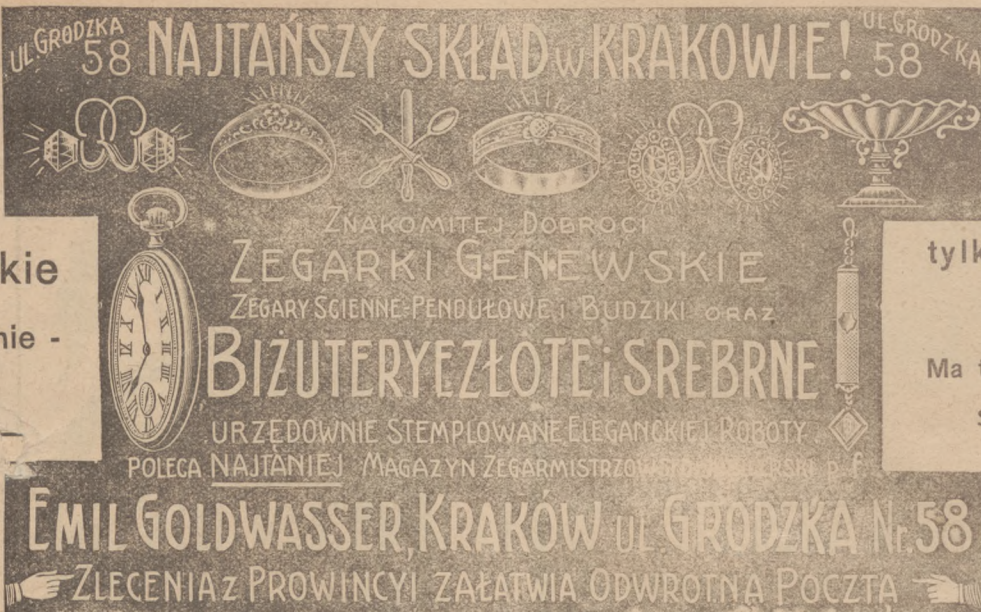 UL. GRODZKA 58 NAJTAŃSZY SKŁAD w KRAKOWIE! UL. GRODZKA 58
ZNAKOMITEJ DOBROCI
ZEGARKI GENEWSKIE
ZEGARY SCIENNE-PENDUŁOWE, i BUDZIKI ORAZ
BIŻUTERYE ZŁOTE i SREBRNE
URZĘDOWNIE STEMPLOWANE ELEGANCKIEJ ROBOTY
POLECA NAJTANIEJ MAGAZYN p. f.
EMIL GOLDWASSER, KRAKÓW UL GRODZKA Nr. 58
ZLECENIA z PROWINCYI ZAŁATWIA ODWROTNA POCZTA
kie
nie -
tylk
Ma